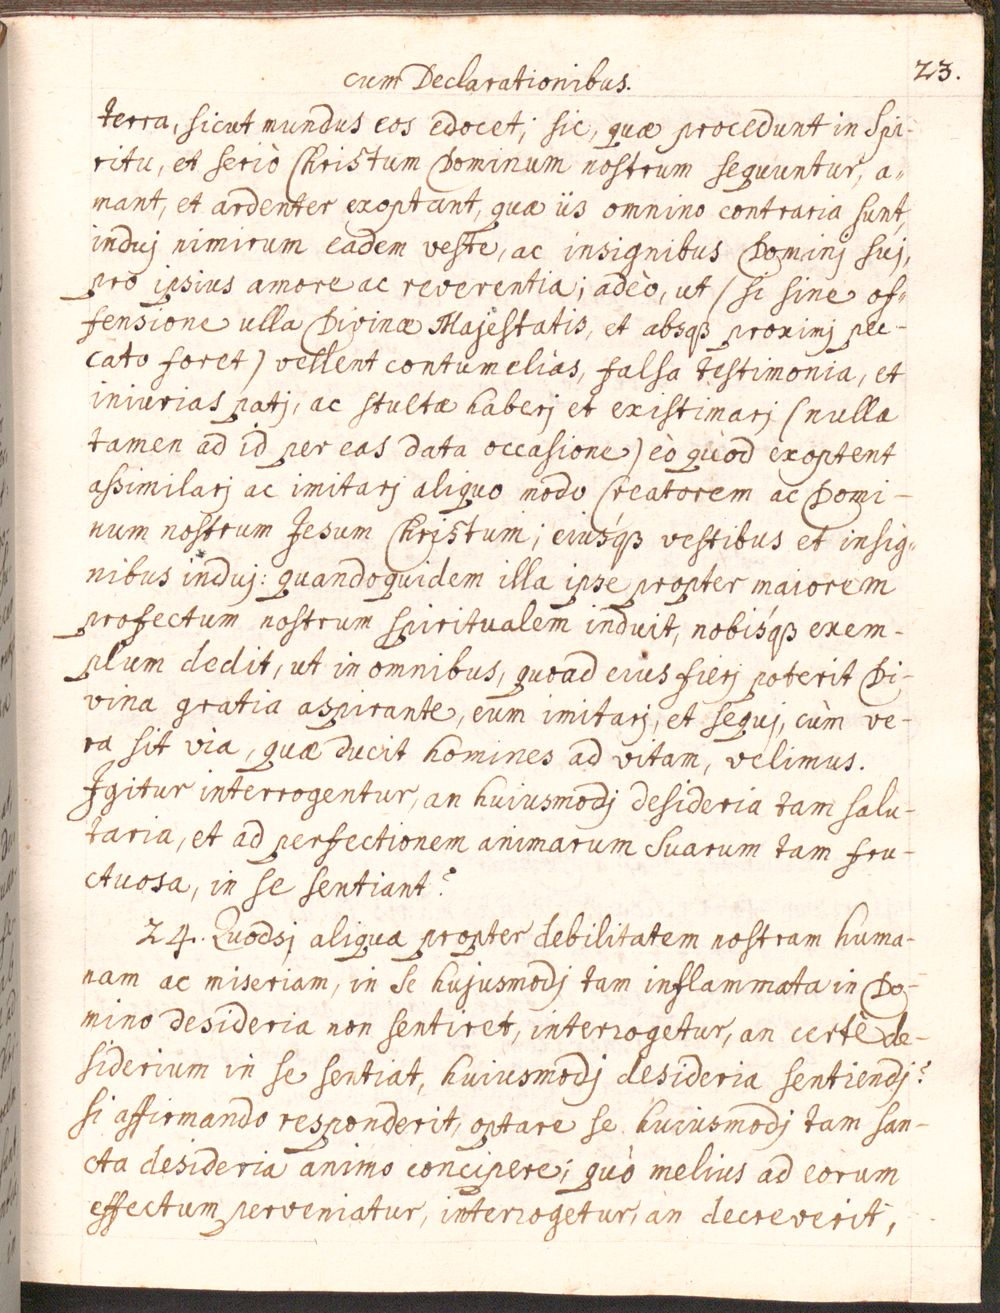 cum Declarationibus.
23.
terra, sicut mundus eos edocet; sic, quæ procedunt in Spi-
ritu, et seriò Christum Dominum nostrum sequuntur, a-
mant, et ardenter exoptant, quæ iis omnino contraria sunt,
induj nimirum eadem veste, ac insignibus Dominj suj,
pro ipsius amore ac reverentia; adeò, ut (si sine of-
fensione ulla Divinæ Majestatis, et absqꝫ proximj pec-
cato foret) vellent contumelias, falsa testimonia, et
iniurias patj, ac stultæ haberj et existimarj (nulla
tamen ad id per eas data occasione) eò quòd exoptent
assimilarj ac imitarj aliquo modo Creatorem ac Domi-
num nostrum Jesum Christum; eiusqꝫ vestibus et insig-
nibus induj: quandoquidem illa ipse propter maiorem
profectum nostrum spiritualem induit, nobisqꝫ exem-
plum dedit, ut in omnibus, quoad eius fierj poterit Di-
vina gratia aspirante, eum imitarj, et sequj, cùm ve-
ra sit via, quæ ducit homines ad vitam, velimus.
Igitur interrogentur, an huiusmodj desideria tam salu-
taria, et ad perfectionem animarum suarum tam fru-
ctuosa, in se sentiant?
24. Quodsj aliqua propter debilitatem nostram huma-
nam ac miseriam, in se hujusmodj tam inflammata in Do-
mino desideria non sentiret, interrogetur, an certè de-
siderium in se sentiat, huiusmodj desideria sentiendj?
si affirmando responderit, optare se huiusmodj tam san-
cta desideria animo concipere; quò melius ad eorum
effectum perveniatur, interrogetur, an decreverit,